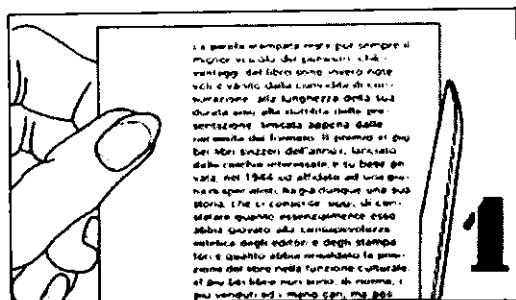 La parola stampata resta pur sempre il
miglior veicolo del pensiero: i
vantaggi del libro sono invero note
voli e vanno dalla comodità di con-
sultazione alla lunghezza della sua
durata sino alla della pre-
sentazione, limitata appena dalle
necessità del formato. Il premio «I più
bei libri svizzeri dell'anno», lanciato
dalle cerchie interessate e su base pri
vata, nel 1944 ed affidato ad una giu-
ria di specialisti, ha già dunque una sua
storia, che ci consente oggi, di con-
statare quanto essenzialmente esso
abbia giovato alla consapevolezza
estetica degli editori e degli stampa
tori e quanto abbia rinsaldato la posi-
zione del libro nella funzione culturale.
«I più bei libri» non sono, di norma, i
più venduti ed i meno cari, ma pos
1